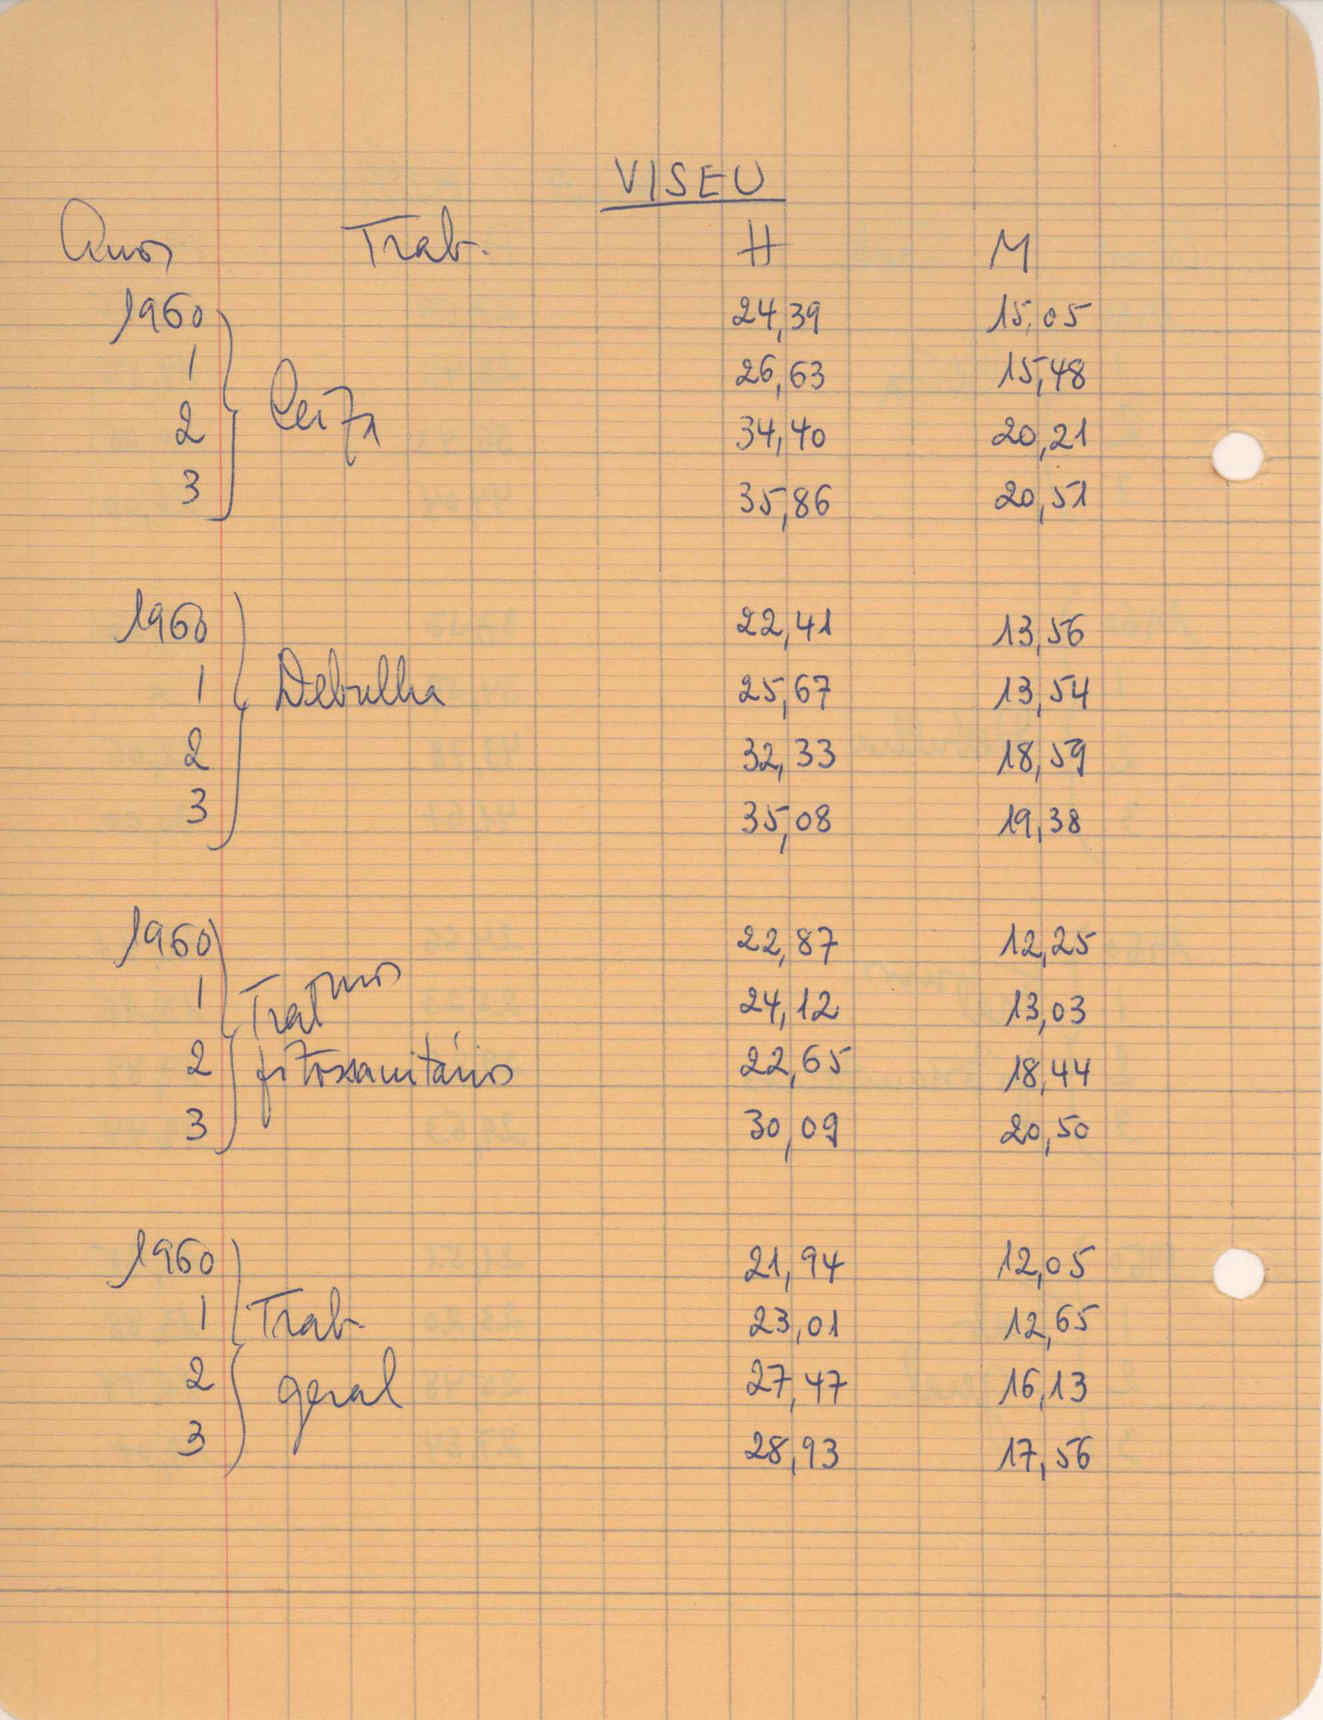 VISEU
Anos Trab. H M
1960 24,39 15,05
1 26,63 15,48
2 Ceifa 34,40 20,21
3 35,86 20,51
1960 22,41 13,56
1 Debulha 25,67 13,54
2 32,33 18,59
3 35,08 19,38
1960 22,87 12,25
1 Trat mos 24,12 13,03
2 fitossanitários 22,65 18,44
3 30,09 20,50
1960 21,94 12,05
1 Trab. 23,01 12,65
2 geral 27,47 16,13
3 28,93 17,56